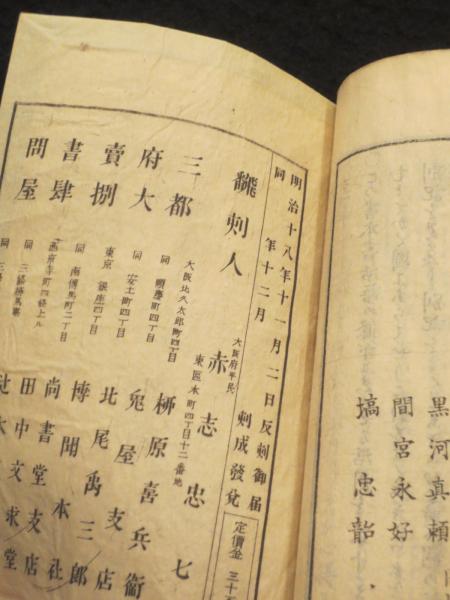 黒河真頼
間宮永好
塙忠韶
明治十八年十一月二日反刻御届
同年十二月刻成發兌
定價金三十
大阪府平民
飜刻人 赤志忠七
東區本町四丁目十二番地
三都
府大
賣捌
書肆
問屋
大阪北久太郎町四丁目 柳原喜兵衞
同 順慶町四丁目
同 安土町四丁目 兎屋支店
東京 銀座四丁目 北尾禹三郎
同 南傳馬町二丁目 博聞本社
尚書堂支店
田中文求堂